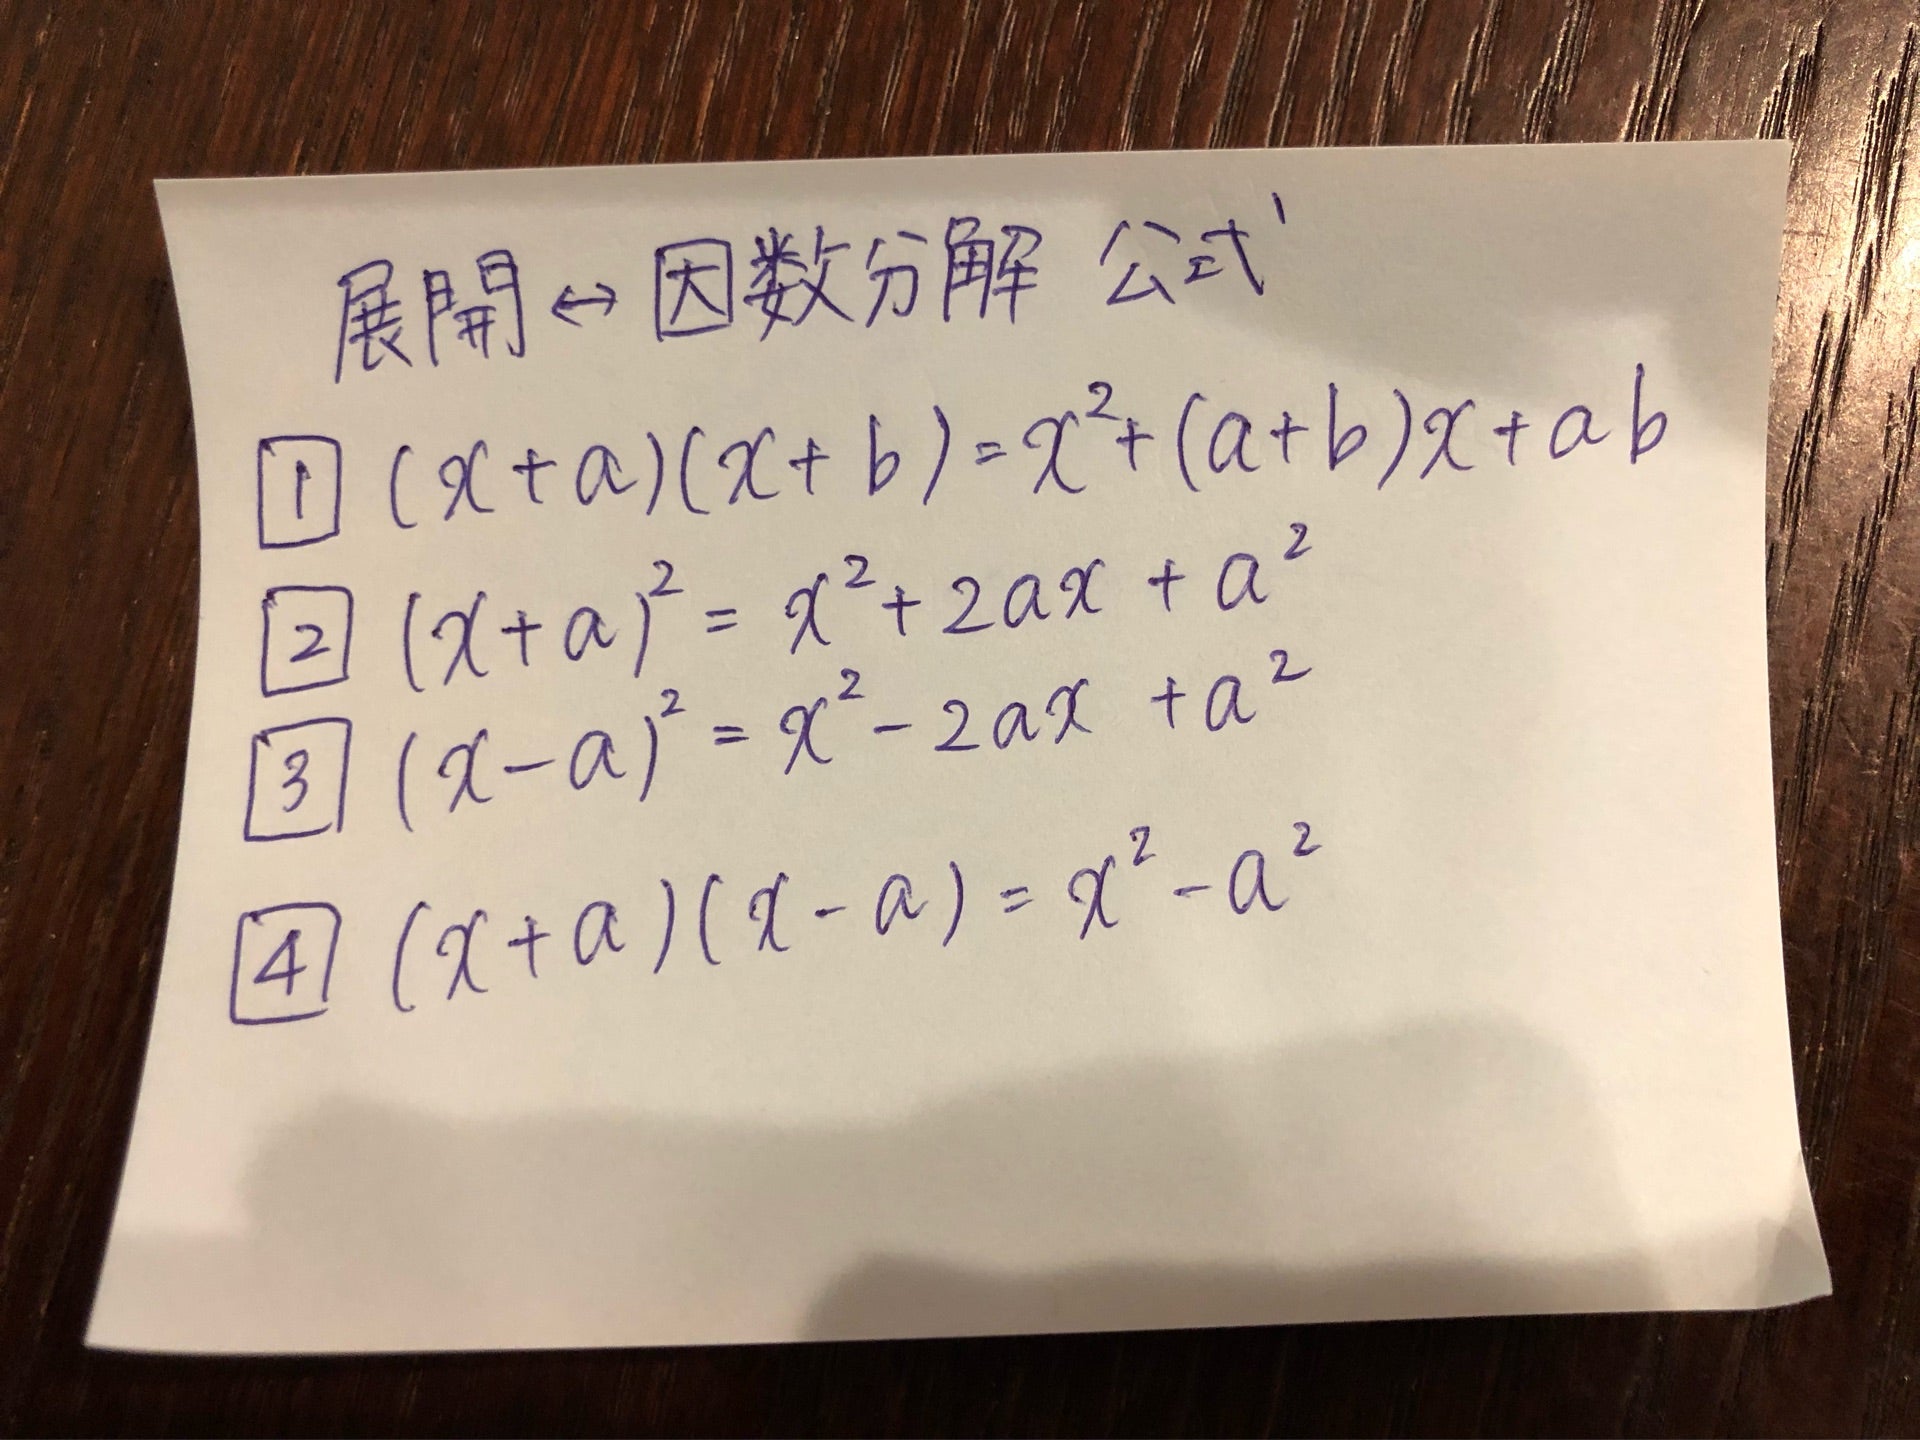 展開↔因数分解 公式
1 (x+a)(x+b)=x²+(a+b)x+ab
2 (x+a)²=x²+2ax+a²
3 (x-a)²=x²-2ax+a²
4 (x+a)(x-a)=x²-a²